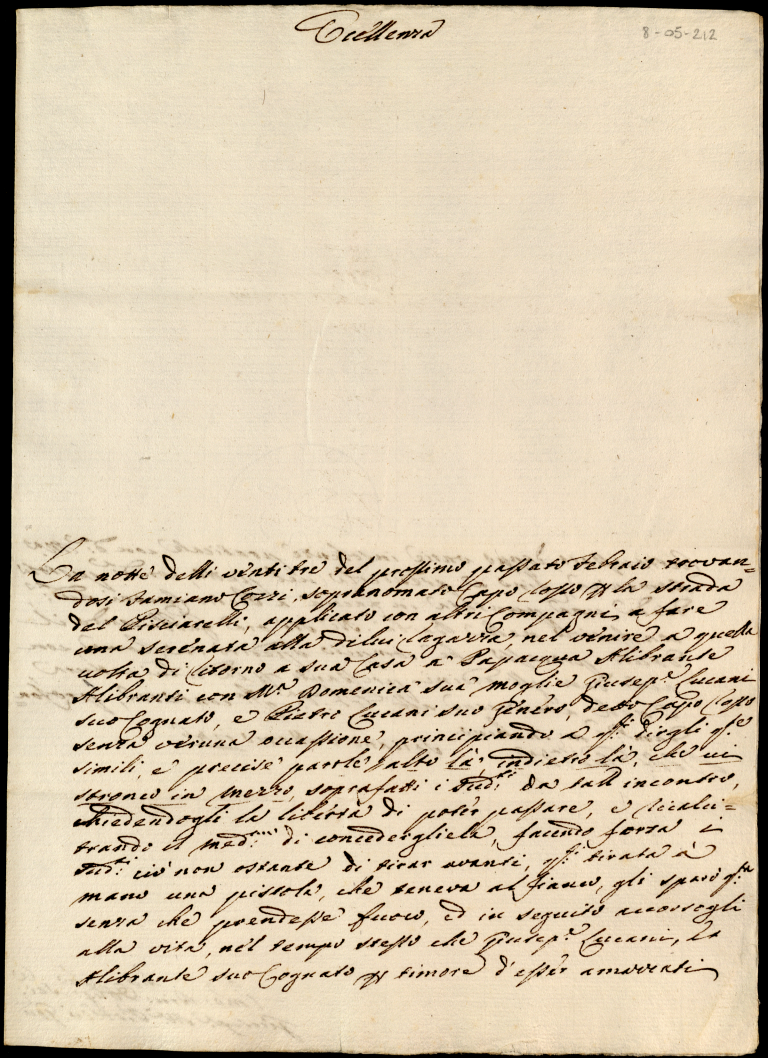 Eccellenza
8-05-212
La notte delli venti tre del prossimo passato Febraio trovan=
dosi Damiano Cozzi, sopranomato Capo losso la strada
del Pisciarelli, applicato con altri Compagni a fare
una serenata alla di lui ragazza, nel venire a quella
volta di ritorno a sua Casa a Papacqua Alibrante
Alibranti con M.ª Domenica sua moglie Giusep.e Cucani
suo Cognato, e Pietro Cucani suo Genero, detto Capo losso
senza veruna occassione, principiando a dirgli
simili, e precise parole alto là, indietro là, che vi
stronco in mezzo, soprafatti i Sud.ti da tale incontro,
chiedendogli la libertà di poter passare, e recalci=
trando il med.mo di concedergliela, facendo forza i
Sud.ti ciò non ostante di tirar avanti, tirata a
mano una pistola, che teneva al fianco, gli sparò
senza che prendesse fuoco, ed in seguito accorsogli
alla vita, nel tempo stesso che Giusep.e Cucani, ed
Alibrante suo Cognato timore d'esser amazzati